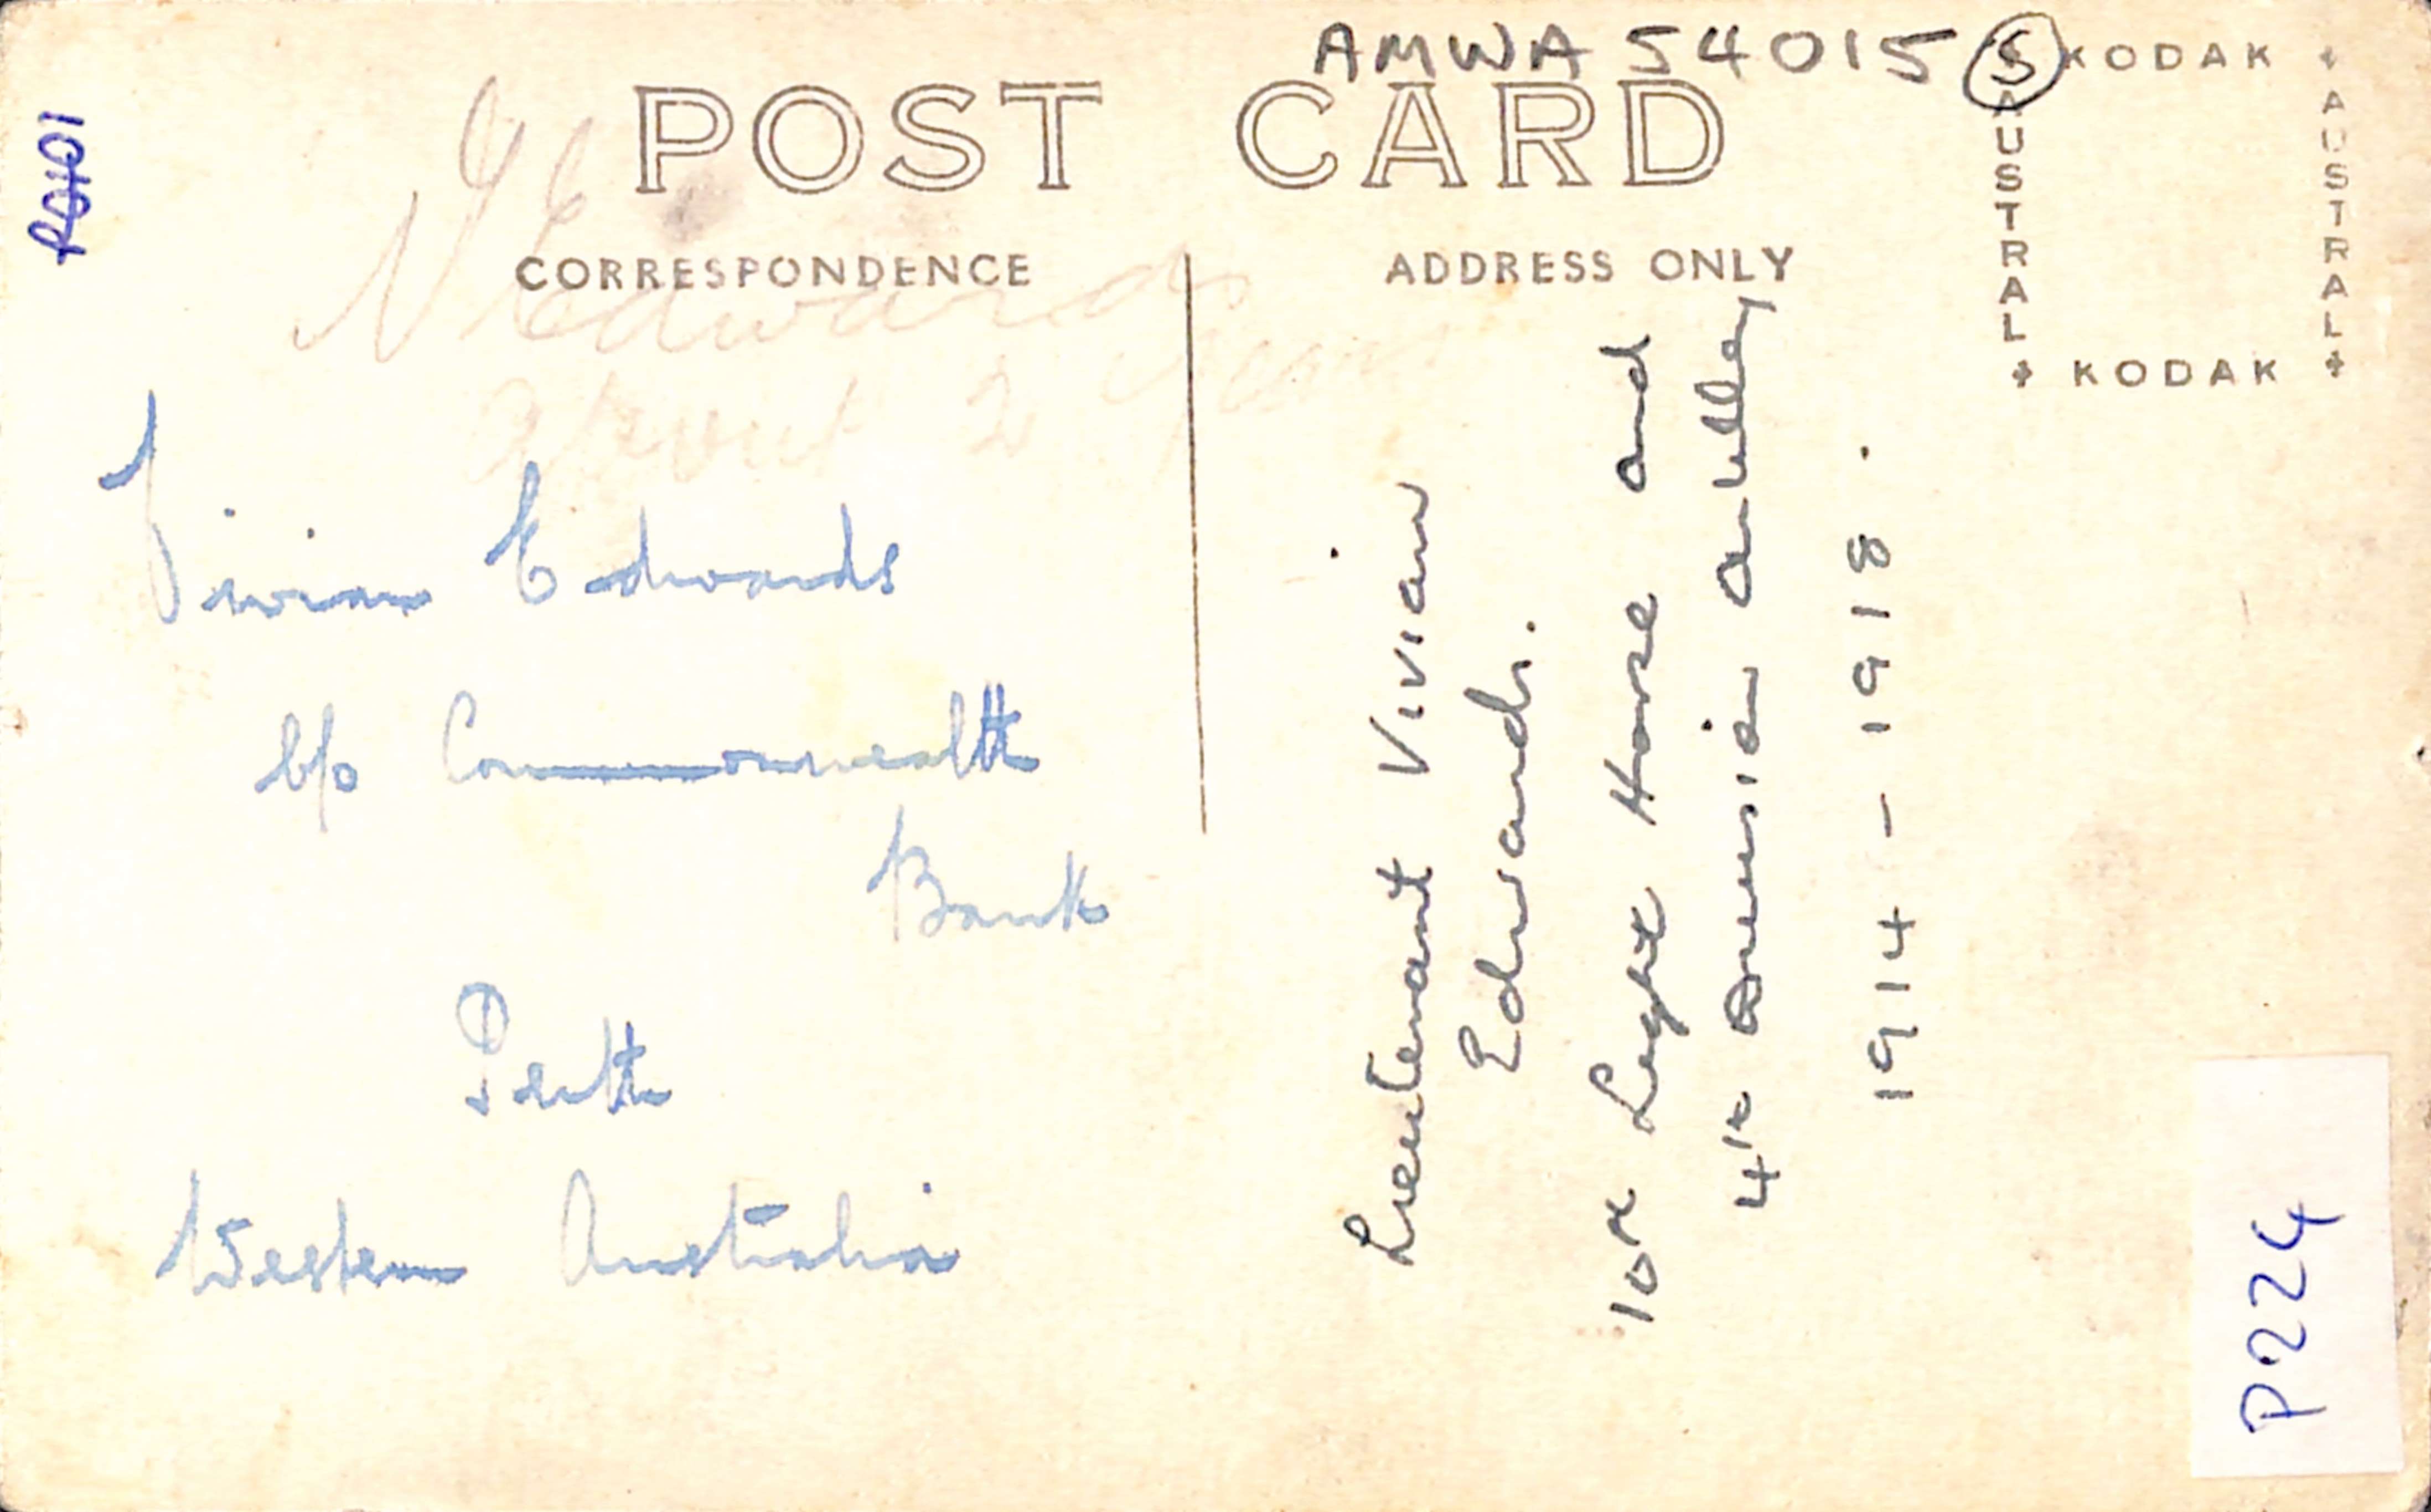 AMWA 54015 S
POST CARD
CORRESPONDENCE
ADDRESS ONLY
KODAK
AUSTRAL
AUSTRAL
KODAK
Edwards
about 2
Vivian Edwards
C/o Commonwealth
Bank
Perth
Western Australia
Lieutenant Vivian
Edwards.
10th Light Horse and
4th Division Artillery
1914 - 1918.
P224